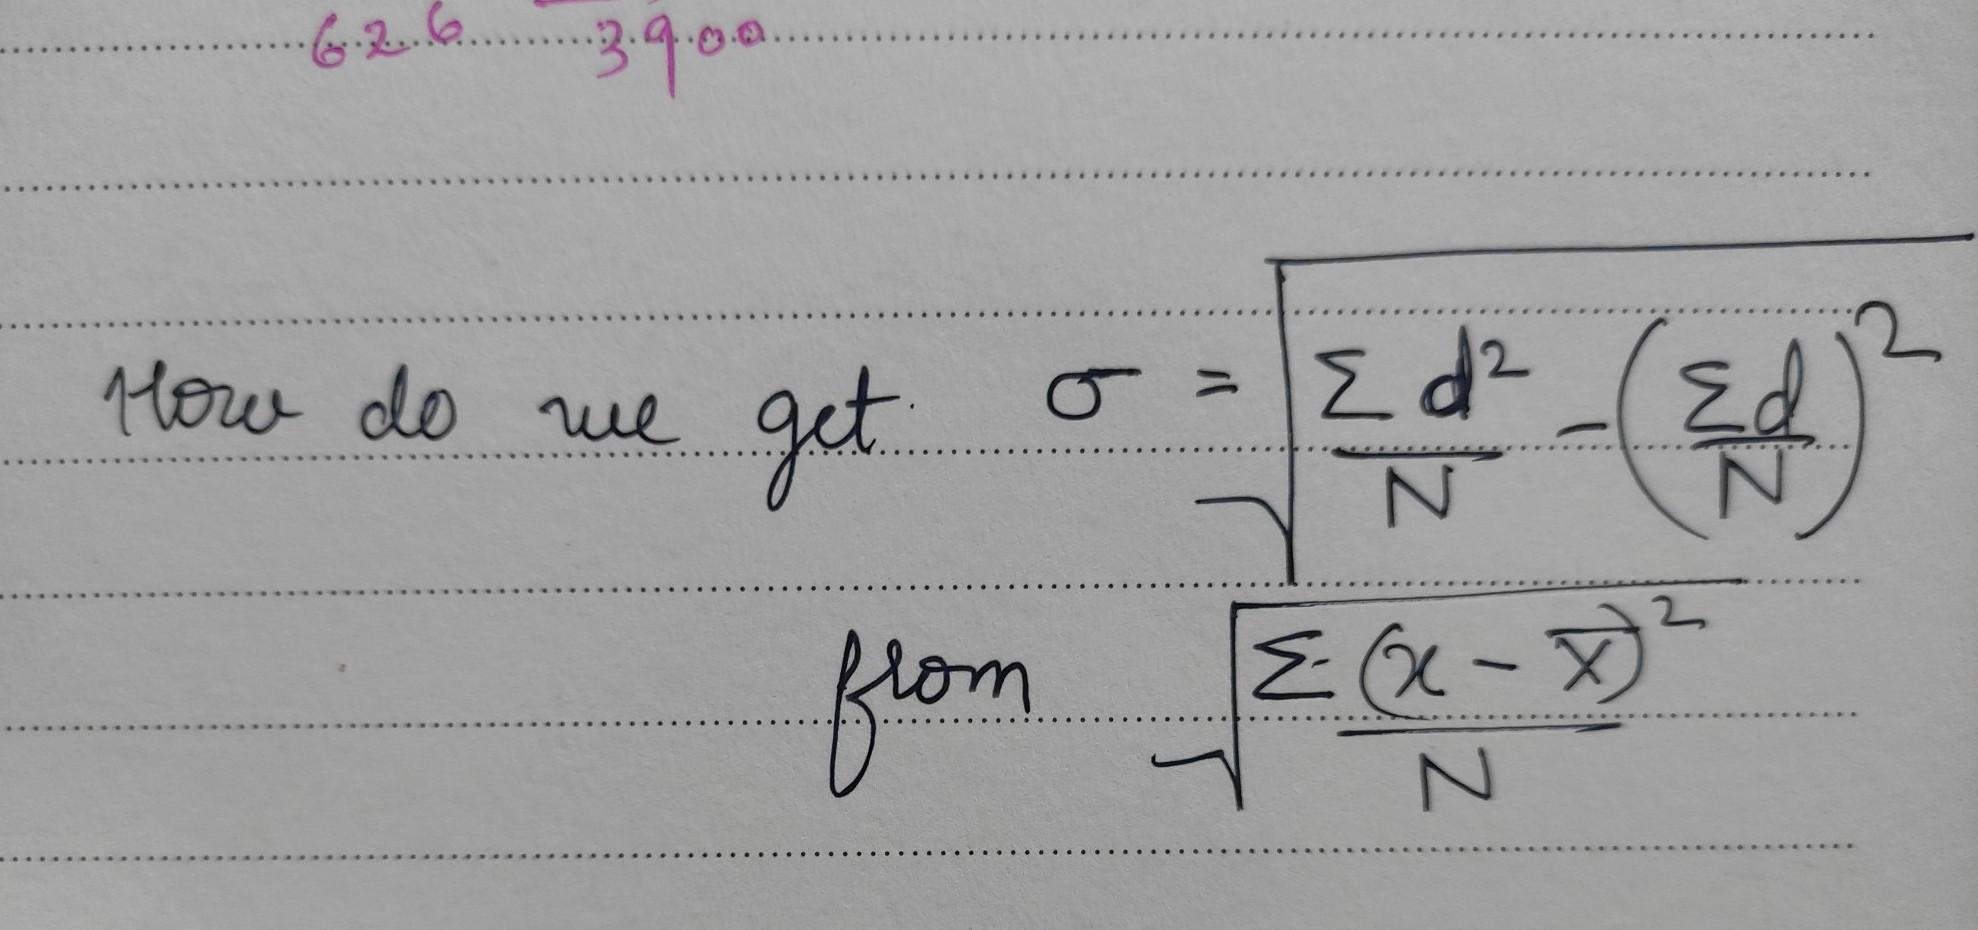 626 3900
How do we get σ = √(Σd²/N - (Σd/N)²)
from √(Σ(x - x̄)²/N)